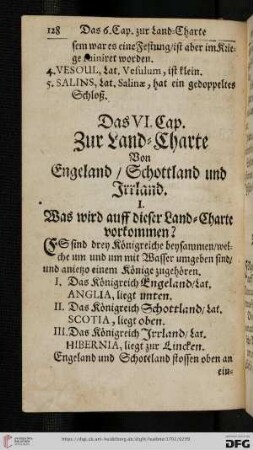 128 Das 6. Cap. zur Land-Charte
sem war es eine Festung/ist aber im Krie-
ge ruiniret worden.
4. VESOUL, Lat. Vesulum, ist klein.
5. SALINS, Lat. Salinæ, hat ein gedoppeltes
Schloß.
Das VI. Cap.
Zur Land-Charte
Von
Engeland / Schottland und
Irrland.
I.
Was wird auff dieser Land-Charte
vorkommen?
ES sind drey Königreiche beysammen/wel-
che um und um mit Wasser umgeben sind/
und anietzo einem Könige zugehören.
I. Das Königreich Engeland/Lat.
ANGLIA, liegt unten.
II. Das Königreich Schottland/Lat.
SCOTIA, liegt oben.
III. Das Königreich Irrland/Lat.
HIBERNIA, liegt zur Lincken.
Engeland und Schotteland stossen oben an
ein-
https://digi.ub.uni-heidelberg.de/diglit/huebner1701/0239
UNIVERSITÄTS-BIBLIOTHEK HEIDELBERG
Gefördert durch die DFG